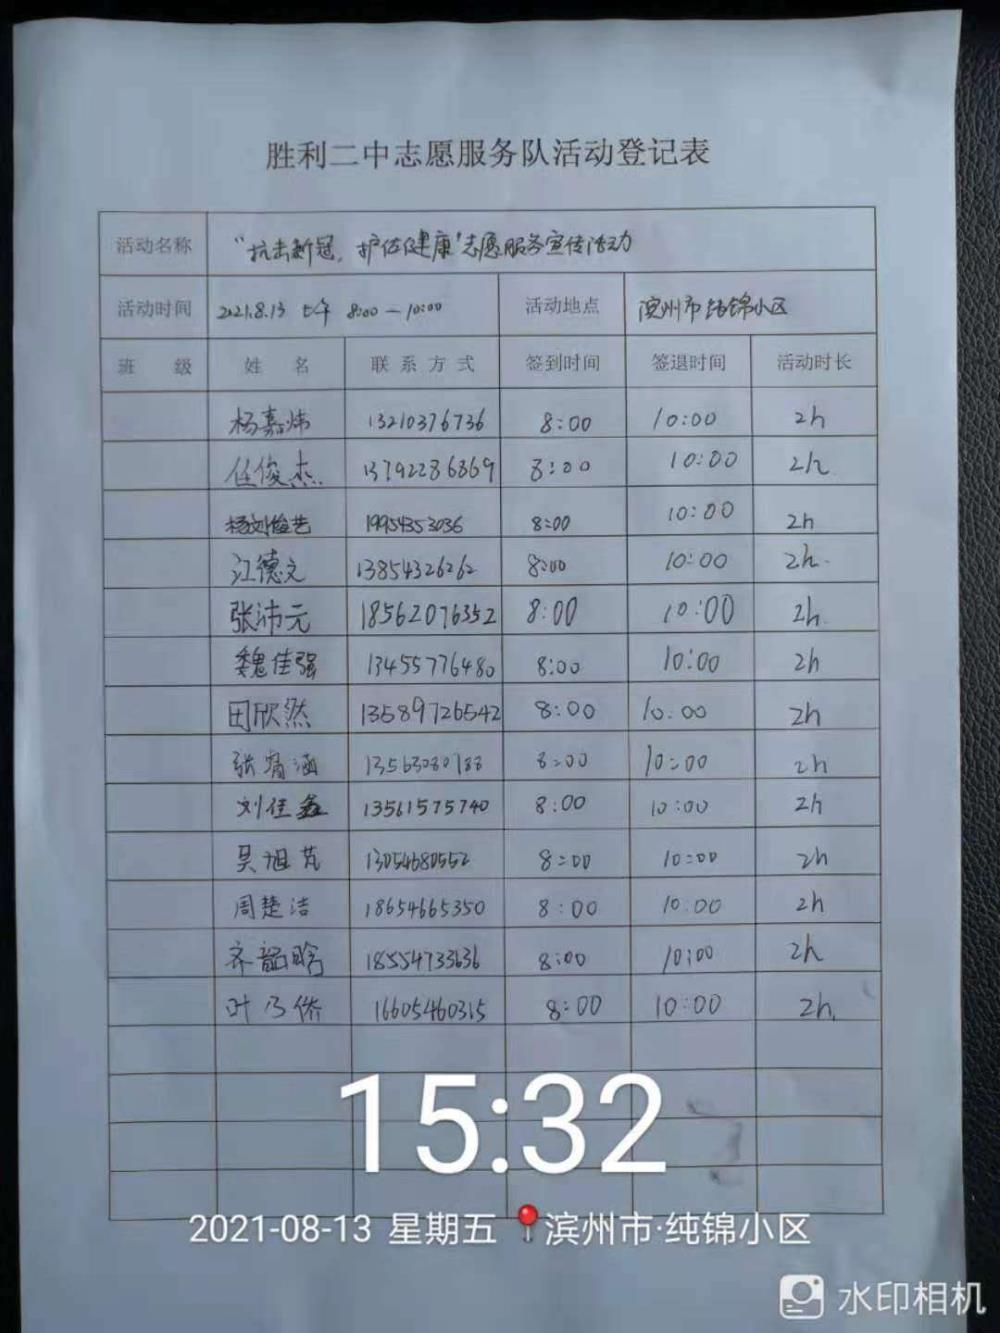 胜利二中志愿服务队活动登记表
活动名称 “抗击新冠，护佑健康”志愿服务宣传活动
活动时间 2021.8.13 上午 8:00—10:00 活动地点 滨州市纯锦小区
班 级 姓 名 联系方式 签到时间 签退时间 活动时长
杨嘉炜 13210376736 8:00 10:00 2h
任俊杰 13792286869 8:00 10:00 2h.
杨刘俊艺 19954353036 8:00 10:00 2h
江德文 13854326262 8:00 10:00 2h.
张沛元 18562076352 8:00 10:00 2h.
魏佳强 13455776480 8:00 10:00 2h
田欣然 13589726542 8:00 10:00 2h
张 涵 8:00 10:00 2h
刘佳鑫 13561575740 8:00 10:00 2h
吴旭芃 13054680552 8:00 10:00 2h
周楚洁 18654665350 8:00 10:00 2h
齐韶晗 18554733636 8:00 10:00 2h
叶乃侨 16605460315 8:00 10:00 2h.
15:32
2021-08-13 星期五 滨州市·纯锦小区
水印相机